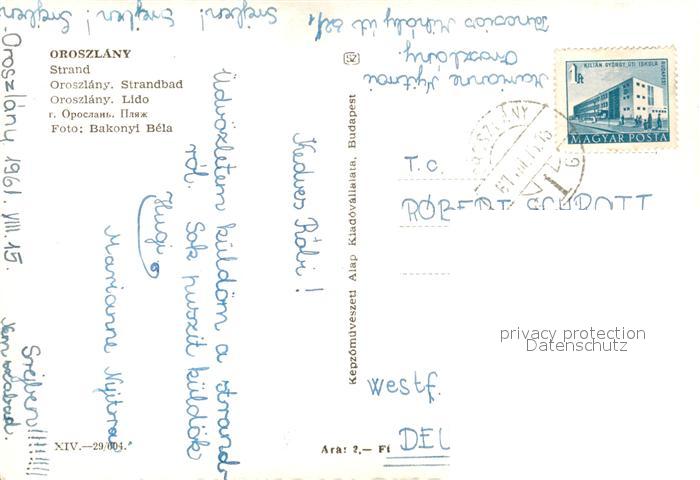 OROSZLÁNY
Strand
Oroszlány. Strandbad
Oroszlány. Lido
г. Орослань. Пляж
Foto: Bakonyi Béla
XIV.—29/604.
Képzőművészeti Alap Kiadóvállalata, Budapest
Ara: 2,— Ft
Oroszlány 1961. VIII. 15.
Kedves Robi!
Üdvözletem küldöm a strand-
ról. Sok puszit küldök
Hugi
Marianne Nyitrai
Marianne Nyitrai
Oroszlány.
Táncsics Mihály út
KILIÁN GYÖRGY ÚTI ISKOLA
BUDAPEST
1 Ft
MAGYAR POSTA
OROSZLÁNY
T.c.
RÓBERT SCHROTT
Westf.
DEU
privacy protection
Datenschutz